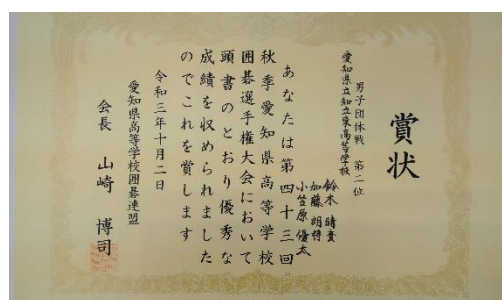 賞状
男子団体戦 第二位
愛知県立知立東高等学校
鈴木晴貴
加藤朗特
小笠原優太
あなたは第四十三回
秋季愛知県高等学校
囲碁選手権大会において
頭書のとおり優秀な
成績を収められました
のでこれを賞します
令和三年十月二日
愛知県高等学校囲碁連盟
会長 山崎博司